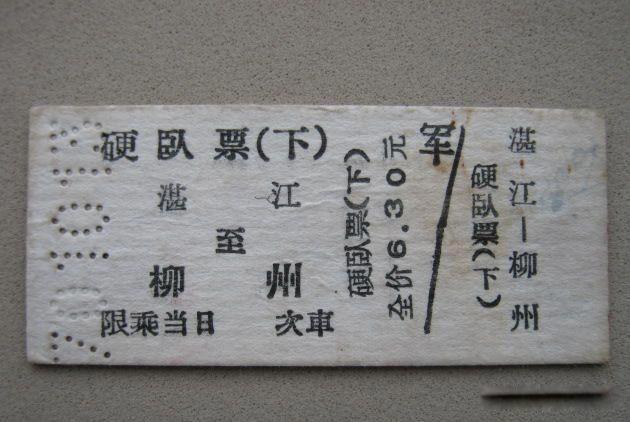 硬臥票(下)
湛江
至
柳州
限乘当日 次車
硬臥票(下)
全价6.30元
军
湛江—柳州
硬臥票(下)